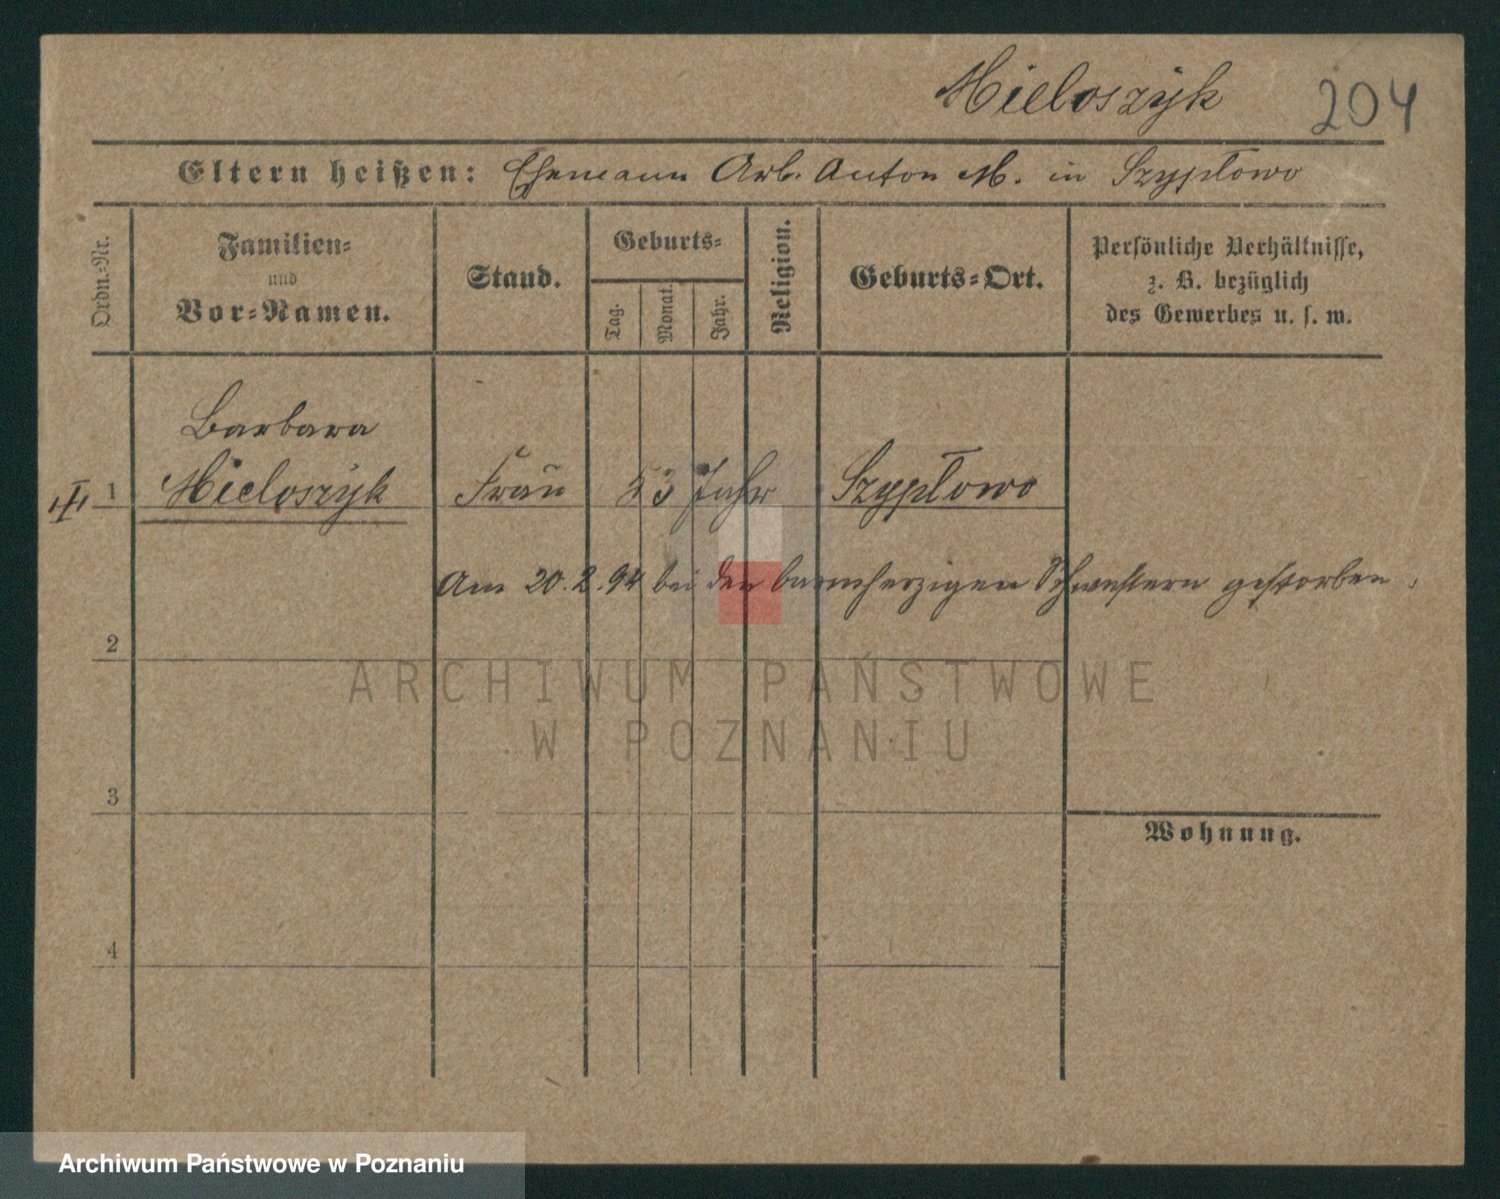 Mieloszÿk 204
Eltern heißen: Ehemann Arb. Anton M. in Szypłowo
Ordn.-Nr.
Familien-
und
Vor-Namen.
Stand.
Geburts-
Tag.
Monat.
Jahr.
Religion.
Geburts-Ort.
Persönliche Verhältnisse,
z. B. bezüglich
des Gewerbes u. s. w.
Barbara
1 Mieloszÿk Frau 53 Jahr Szypłowo
Am 20.2.94 bei den barmherzigen Schwestern gestorben.
2
ARCHIWUM PAŃSTWOWE
W POZNANIU
3
Wohnung.
4
Archiwum Państwowe w Poznaniu